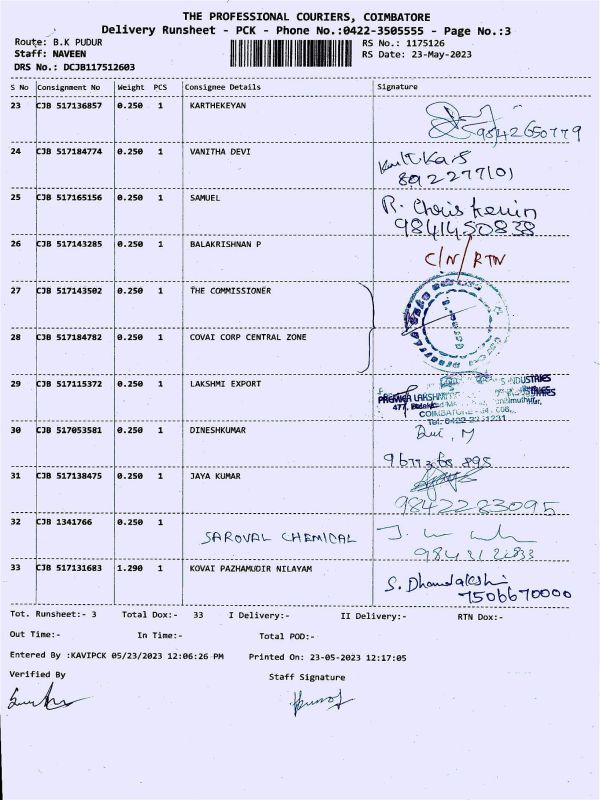 THE PROFESSIONAL COURIERS, COIMBATORE
Delivery Runsheet - PCK - Phone No.:0422-3505555 - Page No.:3
Route: B.K PUDUR RS No.: 1175126
Staff: NAVEEN RS Date: 23-May-2023
DRS No.: DCJB117512603
S No Consignment No Weight PCS Consignee Details Signature
23 CJB 517136857 0.250 1 KARTHEKEYAN
9842650779
24 CJB 517184774 0.250 1 VANITHA DEVI
8922277101
25 CJB 517165156 0.250 1 SAMUEL R. Chris Kevin
9841450838
26 CJB 517143285 0.250 1 BALAKRISHNAN P C/N/RTN
27 CJB 517143502 0.250 1 THE COMMISSIONER
28 CJB 517184782 0.250 1 COVAI CORP CENTRAL ZONE
29 CJB 517115372 0.250 1 LAKSHMI EXPORT
INDUSTRIES
PREMIER LAKSHMI INDUSTRIES
477,
COIMBATORE
Tel: 0422
30 CJB 517053581 0.250 1 DINESHKUMAR
31 CJB 517138475 0.250 1 JAYA KUMAR
9842283095
32 CJB 1341766 0.250 1
SAROVAL CHEMICAL
33 CJB 517131683 1.290 1 KOVAI PAZHAMUDIR NILAYAM
7506670000
Tot. Runsheet:- 3 Total Dox:- 33 I Delivery:- II Delivery:- RTN Dox:-
Out Time:- In Time:- Total POD:-
Entered By :KAVIPCK 05/23/2023 12:06:26 PM Printed On: 23-05-2023 12:17:05
Verified By Staff Signature